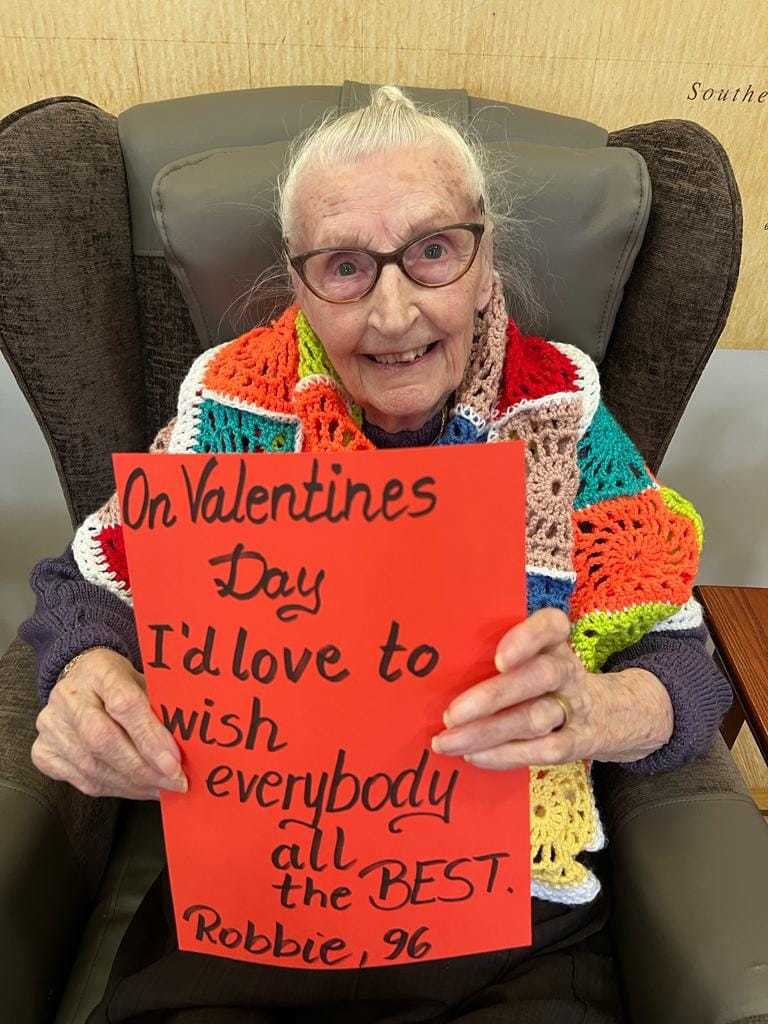 Southe
On Valentines
Day
I'd love to
wish
everybody
all
the BEST.
Robbie, 96